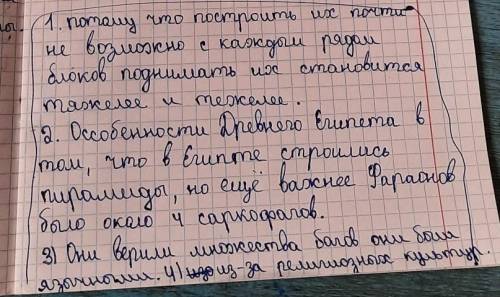 1. потому что построить их почти
не возможно с каждым рядом
блоков поднимать их становится
тяжелее и тежелее.
2. Оссобенности Древнего Египета в
том, что в Египте строились
пирамиды, но ещё важнее Фараонов
было около 4 саркофагов.
3) Они верили множества богов они были
язычными. 4) из-за религиозных культур.